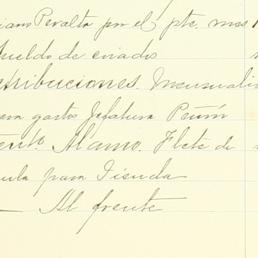 Peralta por el pte. mes
sueldo de criado
tribuciones. Mensuali
para gastos Jefatura Peüm
Alamo. Flete de
para Tienda
— Al frente